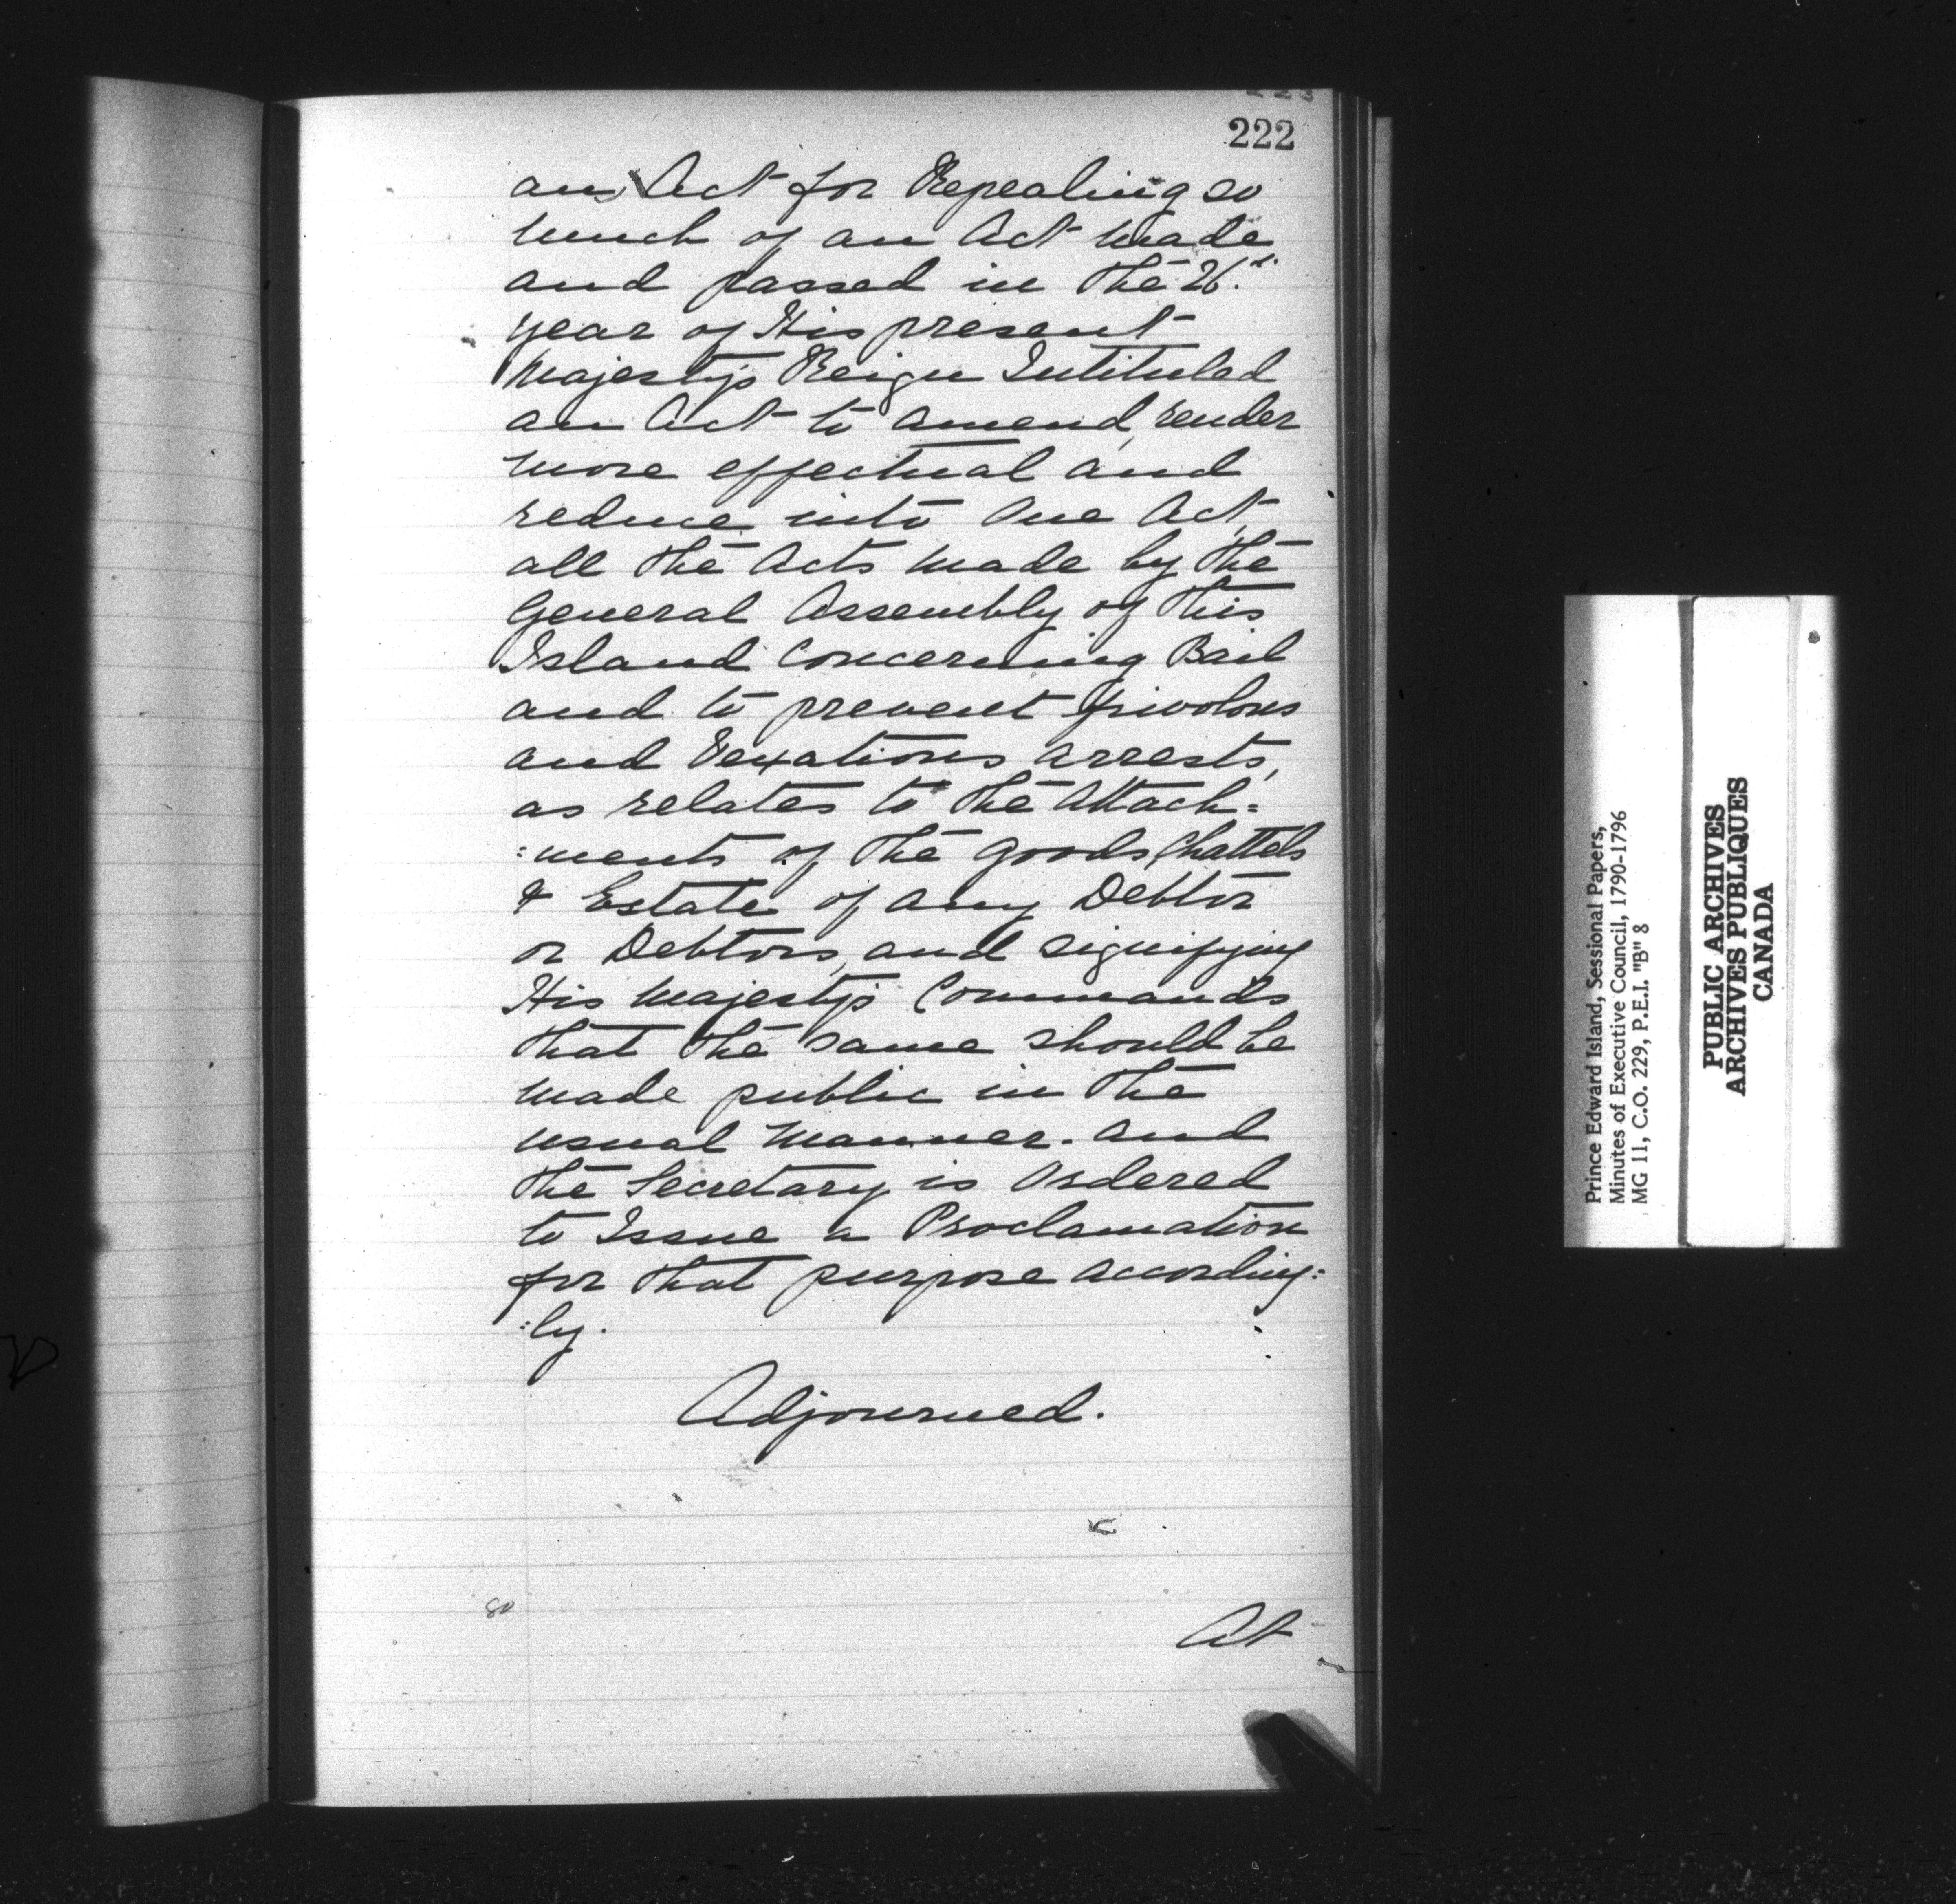 222
an Act for Repealing so
much of an Act made
and passed in the 26th
year of His present
Majesty's Reign Intituled
an Act to amend, render
more effectual and
reduce into one Act,
all the Acts made by the
General Assembly of this
Island concerning Bail
and to prevent frivolous
and Vexatious arrests,
as relates to the Attach=
:ments of the goods, Chattels
& Estate of any Debtor
or Debtors, and signifying
His Majesty's Commands
that the same should be
made public in the
usual Manner. and
the Secretary is ordered
to Issue a Proclamation
for that purpose according:
:ly.
Adjourned.
80
At
Prince Edward Island, Sessional Papers,
Minutes of Executive Council, 1790-1796
MG 11, C.O. 229, P.E.I. "B" 8
PUBLIC ARCHIVES
ARCHIVES PUBLIQUES
CANADA